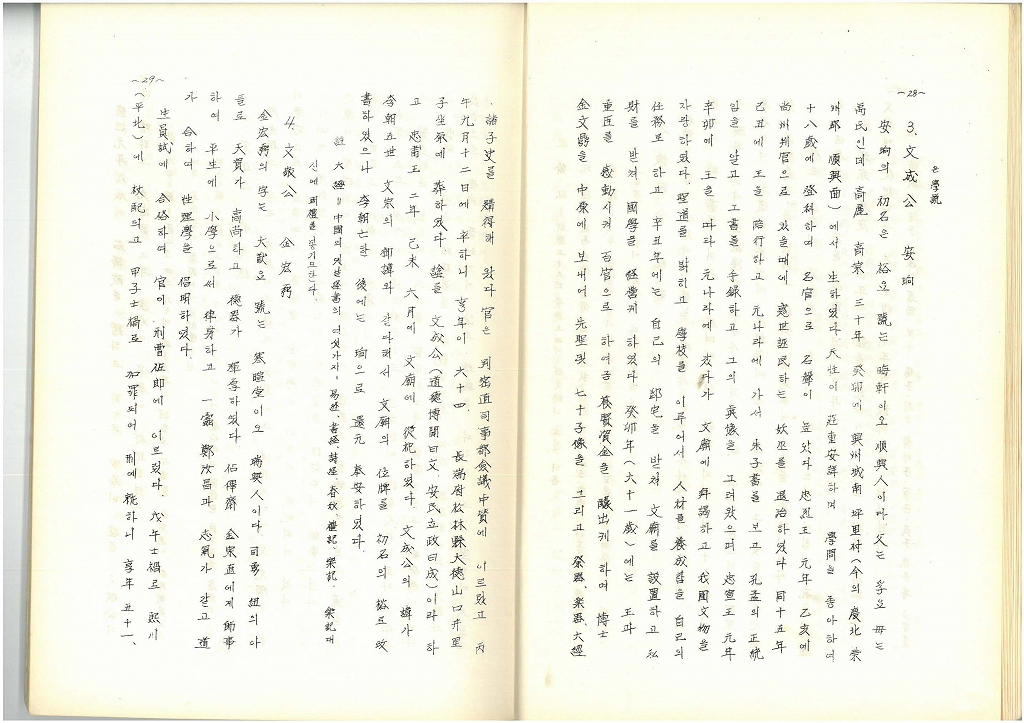 ~28~
은 學說
3. 文成公 安珦
安珦의 初名은 裕요 號는 晦軒이오 順興人이다 父는 孚요 母는
禹氏인데 高麗 高宗 三十年 癸卯에 興州城南 坪里村(今의 慶北榮
州郡 順興面)에서 生하였다. 天性이 莊重安詳하며 學問을 좋아하여
十八歲에 登科하여 名官으로 名聲이 높았다 忠烈王 元年 乙亥에
尙州判官으로 있을때에 惑世誣民하는 妖巫를 退治하였다 同十五年
己丑에 王을 陪行하고 元나라에 가서 朱子書를 보고 孔孟의 正統
임을 알고 그書를 手錄하고 그의 眞像을 그려왔으며 忠宣王 元年
辛卯에 王을 따라 元나라에 갔다가 文廟에 拜謁하고 我國文物을
자랑하였다. 聖道를 밝히고 學校를 이루어서 人材를 養成함을 自己의
任務로 하고 辛丑年에는 自己의 邸宅을 받쳐 文廟를 設置하고 私
財를 받쳐 國學을 經營케 하였다. 癸卯年(六十一歲)에는 王과
重臣을 感動시켜 百官으로 하여금 養賢資金을 醵出케 하며 博士
金文鼎을 中原에 보내어 先聖및 七十子像을 그리고 祭器、樂器、六經
~29~
、諸子史를 購得해 왔다 官은 判密直司事都僉議中贊에 이르렀고 丙
午九月十二日에 卒하니 享年이 六十四. 長湍府松林縣大德山口井里
子坐原에 葬하였다. 諡를 文成公(道德博聞曰文、安民立政曰成)이라 하
고 忠肅王 二年 己未 六月에 文廟에 從祀하였다. 文成公의 諱가
李朝五世 文宗의 御諱와 같다해서 文廟의 位牌를 初名의 裕로 改
書하였으나 李朝亡한 後에는 珦으로 還元 奉安하였다.
註 六經=中國의 옛날經書의 여섯가지。易經、書經、詩經、春秋、禮記、樂記、樂記대
신에 周禮를 넣기도한다.
4. 文敬公 金宏弼
金宏弼의 字는 大猷요 號는 寒暄堂이오 瑞興人이다. 司勇 紐의 아
들로 天質가 高尙하고 德器가 하였다 佔僤齋 金宗直에게 師事
하여 平生에 小學으로써 律身하고 一蠹 鄭汝昌과 志氣가 같고 道
가 合하여 性理學을 倡明하였다.
生員試에 合格하여 官이 刑曹佐郎에 이르렀다. 戊午士禍로 熙川
(平北)에 杖配되고 甲子士禍로 加罪되어 刑에 就하니 享年 五十一、